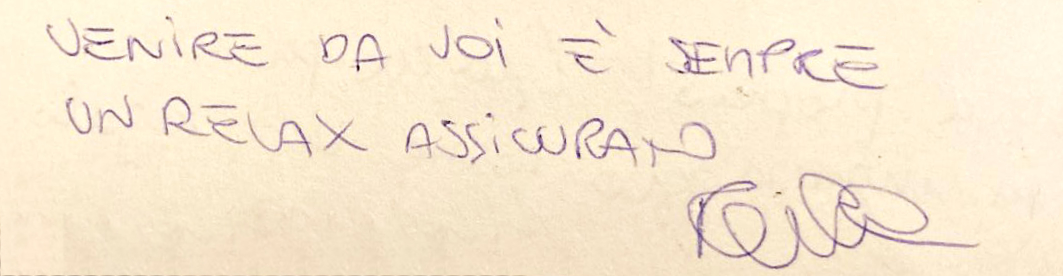 VENIRE DA VOI È SEMPRE
UN RELAX ASSICURATO